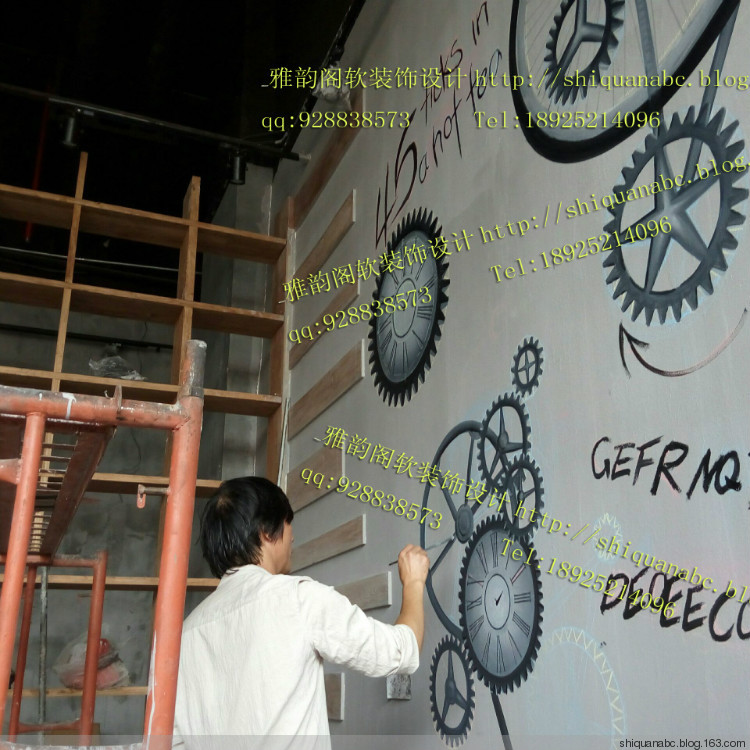 45 ticks in
a not too
_雅韵阁软装饰设计 http://shiquanabc.blog
qq:928838573 Tel:18925214096
_雅韵阁软装饰设计 http://shiquanabc.blog
qq:928838573 Tel:18925214096
GEFRNQ
_雅韵阁软装饰设计 http://shiquanabc.bl
qq:928838573 Tel:18925214096
shiquanabc.blog.163.com